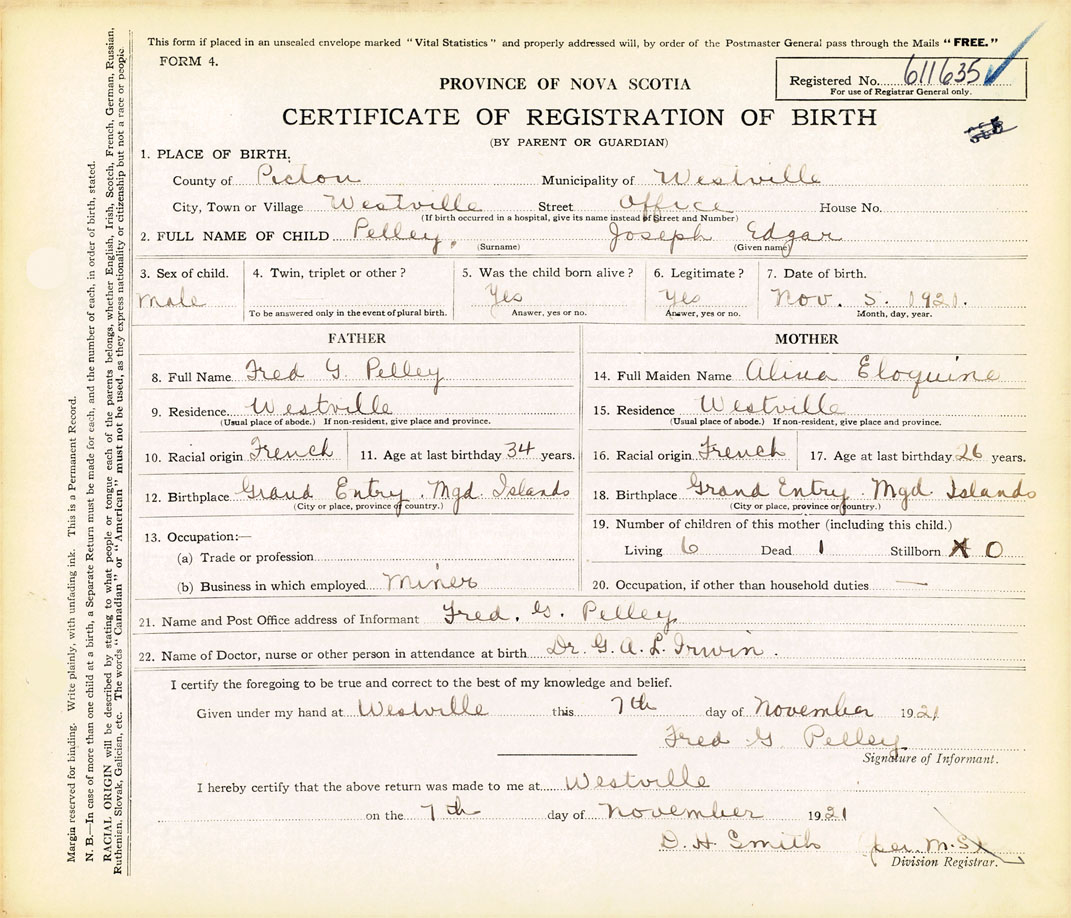 This form if placed in an unsealed envelope marked "Vital Statistics" and properly addressed will, by order of the Postmaster General pass through the Mails "FREE."
FORM 4.
Registered No. 611635
For use of Registrar General only.
PROVINCE OF NOVA SCOTIA
CERTIFICATE OF REGISTRATION OF BIRTH
(BY PARENT OR GUARDIAN)
1. PLACE OF BIRTH.
County of Pictou Municipality of Westville
City, Town or Village Westville Street Office House No.
(If birth occurred in a hospital, give its name instead of Street and Number)
2. FULL NAME OF CHILD Pelley, Joseph Edgar
(Surname) (Given name)
3. Sex of child. 4. Twin, triplet or other? 5. Was the child born alive? 6. Legitimate? 7. Date of birth.
male Yes Yes Nov. 5. 1921.
To be answered only in the event of plural birth. Answer, yes or no. Answer, yes or no. Month, day, year.
FATHER MOTHER
8. Full Name Fred G. Pelley 14. Full Maiden Name Alina Eloquine
9. Residence Westville 15. Residence Westville
(Usual place of abode.) If non-resident, give place and province. (Usual place of abode.) If non-resident, give place and province.
10. Racial origin French 11. Age at last birthday 34 years. 16. Racial origin French 17. Age at last birthday 26 years.
12. Birthplace Grand Entry. Mgd. Islands 18. Birthplace Grand Entry. Mgd. Islands
(City or place, province or country.) (City or place, province or country.)
13. Occupation:— 19. Number of children of this mother (including this child.)
(a) Trade or profession Living 6 Dead 1 Stillborn 0
(b) Business in which employed Miner 20. Occupation, if other than household duties —
21. Name and Post Office address of Informant Fred. G. Pelley
22. Name of Doctor, nurse or other person in attendance at birth Dr. G. A. L. Irwin.
I certify the foregoing to be true and correct to the best of my knowledge and belief.
Given under my hand at Westville this 7th day of November 1921
Fred G Pelley
Signature of Informant.
I hereby certify that the above return was made to me at Westville
on the 7th day of November 1921
D. H Smith per M.S
Division Registrar.
Margin reserved for binding. Write plainly, with unfading ink. This is a Permanent Record.
N. B.—In case of more than one child at a birth, a Separate Return must be made for each, and the number of each, in order of birth, stated.
RACIAL ORIGIN will be described by stating to what people or tongue each of the parents belongs, whether English, Irish, Scotch, French, German, Russian,
Ruthenian, Slovak, Galician, etc. The words "Canadian" or "American" must not be used, as they express nationality or citizenship but not a race or people